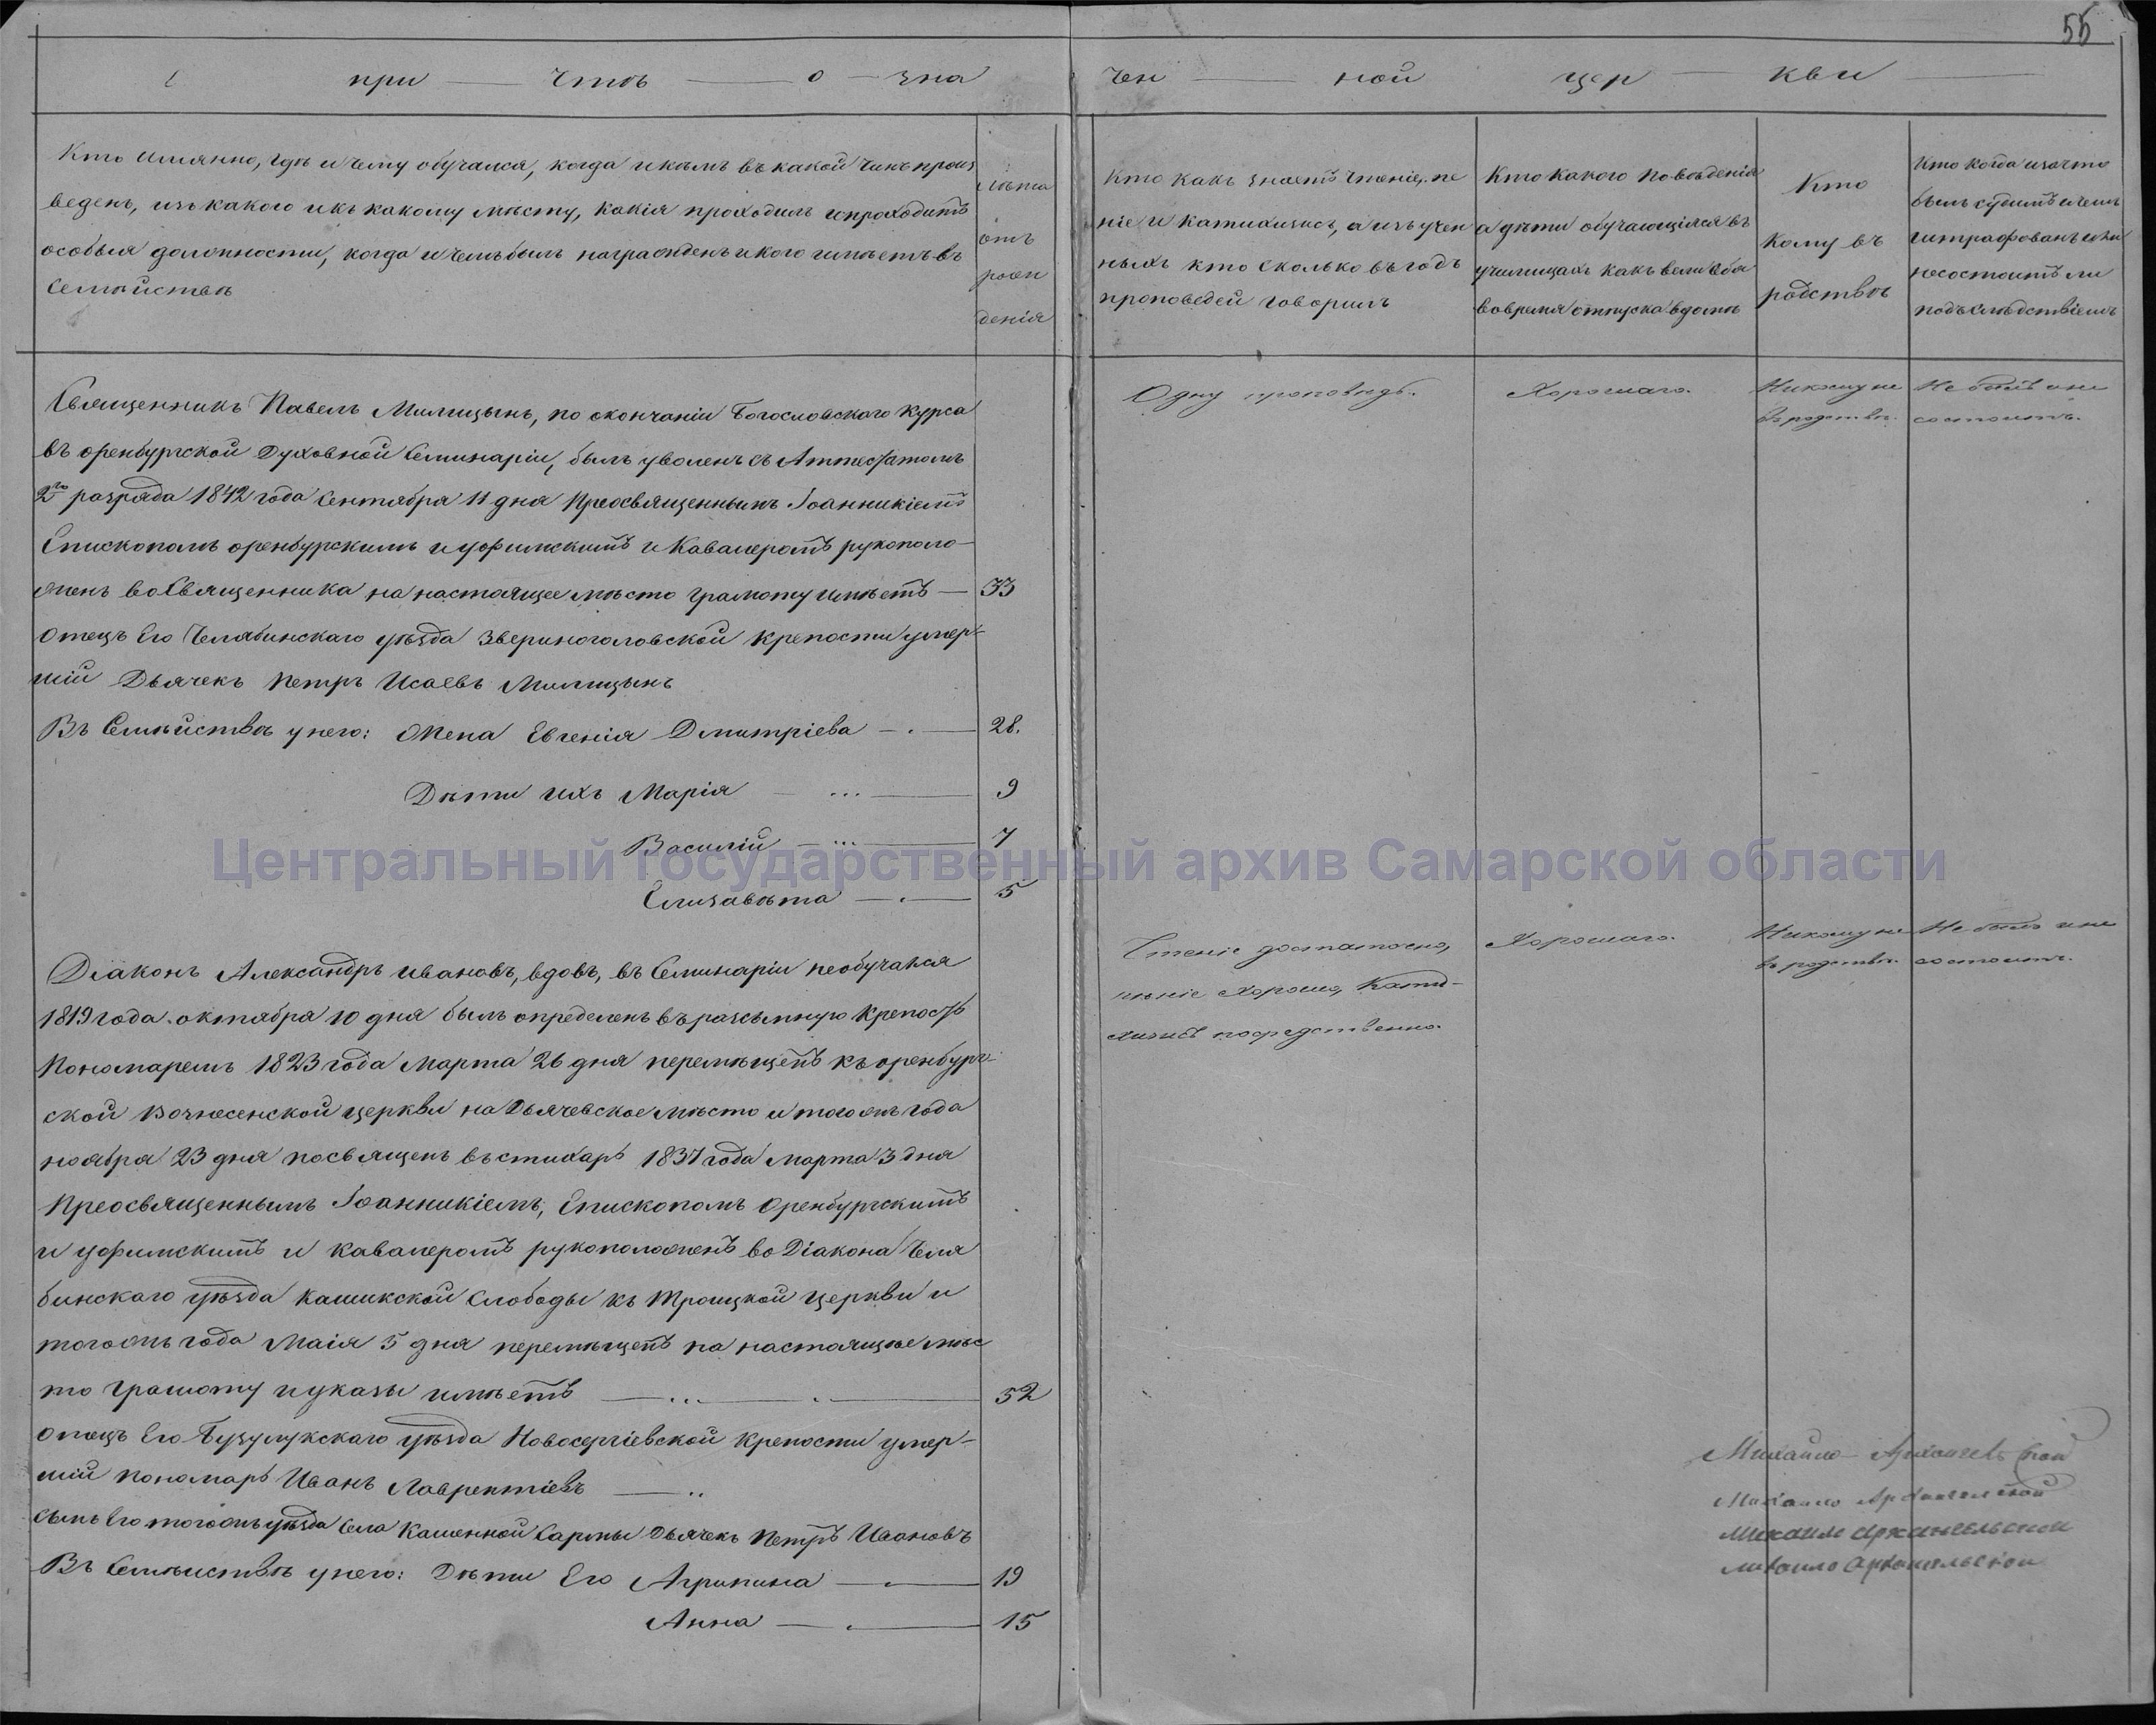 55
при — чтѣ — о — зна чен — ной цер — кви
Кто имянно, гдѣ и чему обучался, когда и кѣмъ въ какой чинъ произ
веденъ, изъ какого и къ какому мѣсту, какія проходилъ и проходитъ
особыя должности, когда и чемъ былъ награжденъ и кого имѣетъ въ
Семействѣ
лѣта
отъ
рож
денія
Кто какъ знаетъ чтеніе, пе
ніе и катихизисъ, а изъ учен
ныхъ кто сколько въ годъ
проповедей говорилъ
Кто какого поведенія
а дѣти обучающіяся въ
училищахъ какъ вели себя
во время отпуска в домѣ
Кто
кому въ
родствѣ
Кто когда и за что
былъ судимъ и чемъ
штрафованъ и ни
не состоитъ ли
подъ слѣдствіемъ
Священникъ Павелъ Милицынъ, по окончаніи Богословскаго курса
въ оренбургской Духовной Семинаріи, былъ уволенъ съ Аттестатомъ
2го разряда 1842 года Сентября 11 дня Преосвященнымъ Іоанникіемъ
Епископомъ оренбурскимъ и уфимскимъ и Кавалеромъ рукополо-
женъ во Священника на настоящее мѣсто грамоту имѣетъ — 33
отецъ Его Челябинскаго уѣзда Звериноголовской крепости умер-
шій Дьячекъ Петръ Исаевъ Милицынъ
Въ Семействѣ у него: Жена Евгенія Дмитріева — 28.
Дѣти ихъ Марія — 9
Василій — 7
Елизавѣта — 5
Одну проповедь.
Хорошаго.
Никому не
въ родствѣ.
Не былъ и не
состоитъ.
Центральный государственный архив Самарской области
Діаконъ Александръ Ивановъ, вдовъ, въ Семинаріи необучался
1819 года октября 10 дня былъ определенъ въ разсыпную крепость
Пономаремъ 1823 года Марта 26 дня перемѣщенъ къ оренбург-
ской Вознесенской церкви на Дьячевское мѣсто и того жъ года
ноября 23 дня посвященъ въ стихарь 1837 года Марта 3 дня
Преосвященнымъ Іоанникіемъ, Епископомъ Оренбургскимъ
и уфимскимъ и кавалеромъ рукоположенъ во Діакона Челя
бинскаго уѣзда Слободы къ Троицкой церкви и
тогожъ года Маія 5 дня перемѣщенъ на настоящее мѣс
то грамоту и указы имѣетъ — 52
отецъ Его Бузулукскаго уѣзда Новосергіевской крепости умер-
шій пономарь Иванъ Лаврентіевъ
сынъ Его того жъ уѣзда Села Каменной Сармы Дьячекъ Петръ Ивановъ
Въ Семействѣ у него: Дѣти Его Агрипина — 19
Анна — 15
Чтеніе достаточно,
пѣніе хорошо, Кати-
хизисъ посредственно.
Хорошаго.
Никому не
въ родствѣ.
Не былъ и не
состоитъ.
Михайло Архангельской
Михаило Архангельской
Михаило Архангельской
Михаило Архангельской